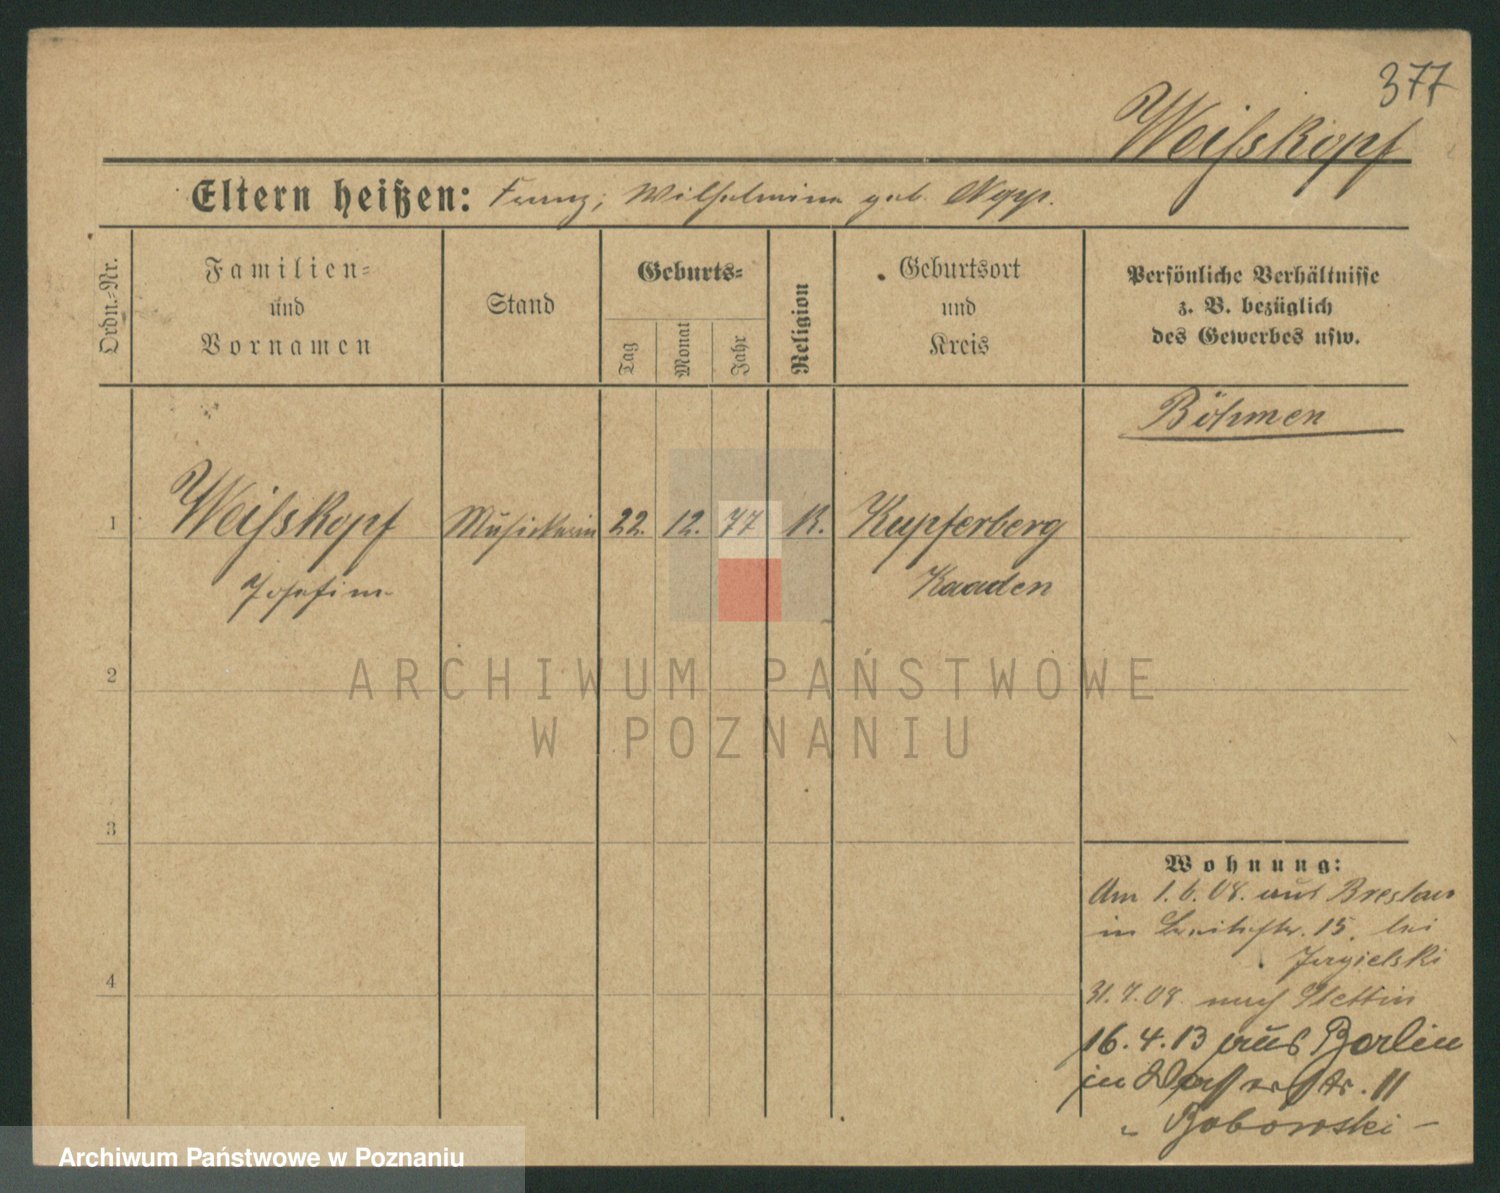 377
Weiſskopf
Eltern heißen: Franz; Wilhelmine geb.
Ordn.-Nr.
Familien-
und
Vornamen
Stand
Geburts-
Tag
Monat
Jahr
Religion
Geburtsort
und
Kreis
Persönliche Verhältnisse
z. B. bezüglich
des Gewerbes usw.
Böhmen
1 Weiſskopf Musickerin 22. 12. 77 K. Kupferberg
Josefine Kaaden
2
ARCHIWUM PAŃSTWOWE
W POZNANIU
3
Wohnung:
Am 1.6.08. aus Breslau
in 15. bei
Jagielski
31.7.08. nach Stettin
4
16.4.13 aus Berlin
in Wasserstr. 11
" Bobowski –
Archiwum Państwowe w Poznaniu